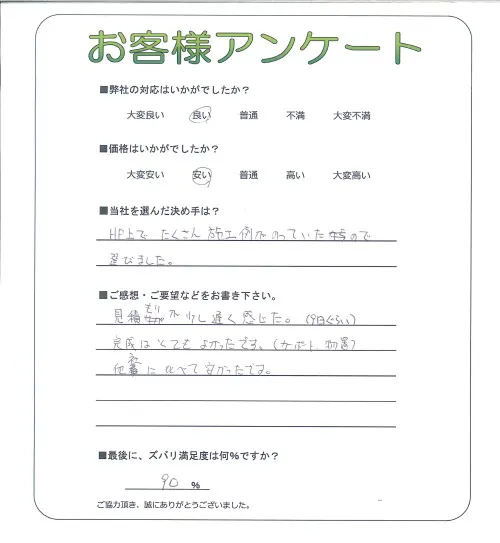 お客様アンケート
■弊社の対応はいかがでしたか?
大変良い 良い 普通 不満 大変不満
■価格はいかがでしたか?
大変安い 安い 普通 高い 大変高い
■当社を選んだ決め手は?
HP上で たくさん 施工例がのっていたので
選びました。
■ご感想・ご要望などをお書き下さい。
見積もりが少し遅く感じた。(9日ぐらい)
完成はとてもよかったです。(カーポート 物置)
他社に比べて安かったです。
■最後に、ズバリ満足度は何%ですか?
90 %
ご協力頂き、誠にありがとうございました。